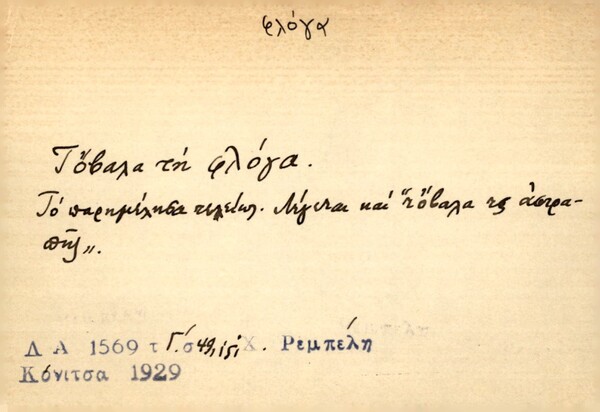 φλόγα
Τὄβαλα τὴ φλόγα.
Τὸ παρημέλησα τελείως. Λέγεται καὶ "τὄβαλα τς ἀστρα-
πῆς„.
Λ Α 1569 τ Γ΄. σ 49, Χ. Ρεμπέλη
Κόνιτσα 1929